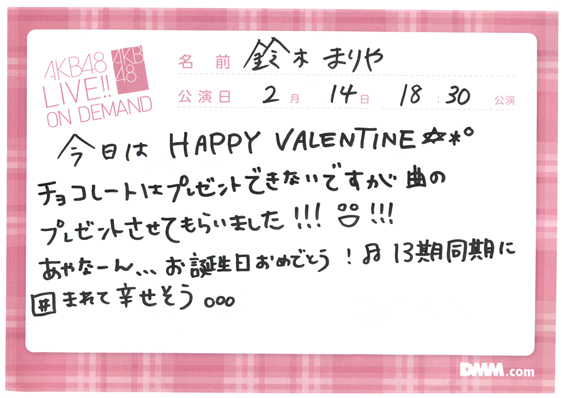 AKB48
LIVE!!
ON DEMAND
AKB
48
名前 鈴木まりや
公演日 2月 14日 18:30 公演
今日は HAPPY VALENTINE☆*°
チョコレートはプレゼントできないですが曲の
プレゼントさせてもらいました!!! !!!
あやなーん、、、お誕生日おめでとう!♫ 13期同期に
囲まれて幸せそう。。。
DMM.com